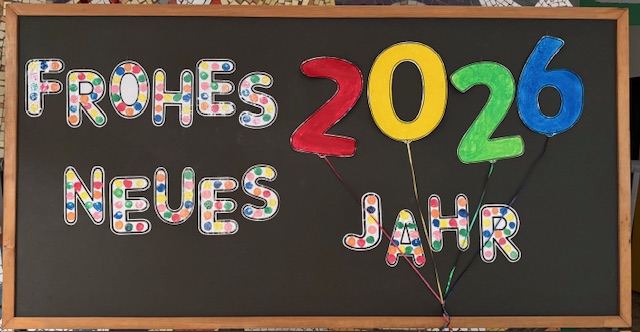 FROHES 2026
NEUES JAHR